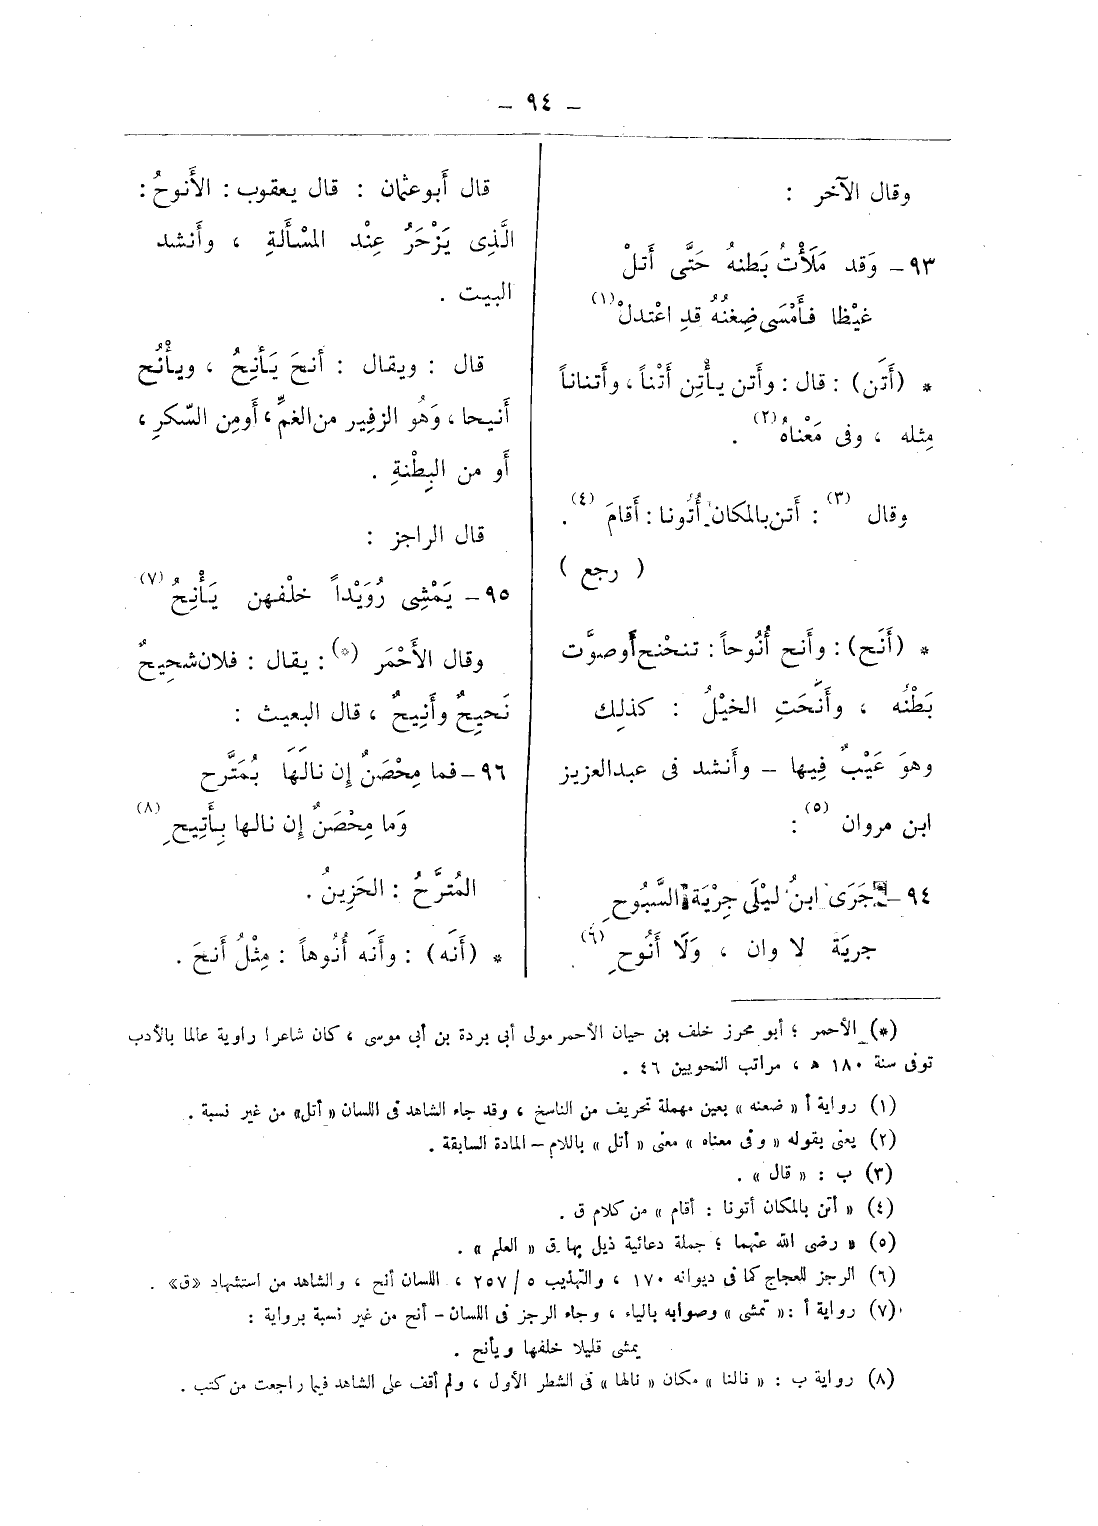 — ٩٤ —
وقال الآخر :
٩٣ – وَقد مَلَأْتُ بَطنهُ حَتَّى أَتلْ
غيْظا فأَمْسَى ضِغنُهُ قدِ اعْتدلْ (١)
* (أَتَن) : قال : وأَتن يأْتِن أَتْناً ، وأَتناناً
مِثله ، وفى مَعْناهُ (٢) .
وقال (٣) : أَتن بالمكان أُتُونا : أَقامَ (٤) .
( رجع )
* (أَنَح) : وأَنح أُنُوحاً : تنحْنح أَو صوَّت
بَطْنُه ، وأَنَّحَتِ الخيْلُ : كذلِك
وهوَ عَيْبٌ فِيها – وأَنشد فى عبدالعزيز
ابن مروان (٥) :
٩٤ – جَرَى ابنُ ليْلَى جِرْيَةَ السَّبُوحِ
جريَة لا وان ، وَلَا أَنُوحِ (٦) .
قال أَبو عثمان : قال يعقوب : الأَنوحُ :
الَّذِى يَزْحَرُ عِنْد المسْأَلةِ ، وأَنشد
البيت .
قال : ويقال : أَنحَ يَأْنِحُ ، ويأْنُح
أَنيحا ، وَهُو الزفِير من الغمِّ ، أَو مِن السّكرِ ،
أَو من البِطْنةِ .
قال الراجز :
٩٥ – يَمْشِى رُوَيْداً خلْفهن يَأْنِحُ (٧)
وقال الأَحْمَر (*) : يقال : فلان شحِيحٌ
نَحيِحٌ وأَنِيحٌ ، قال البعيث :
٩٦ – فما مِحْصَنٌ إِن نالَها بمُتَرَّح
وَما مِحْصَنٌ إِن نالها بِأَنيحِ (٨)
المُترَّحُ : الحَزِينُ .
* (أَنَه) : وأَنَه أُنُوهاً : مِثْلُ أَنحَ .
(*) الأحمر ؛ أبو محرز خلف بن حيان الأحمر مولى أبى بردة بن أبى موسى ، كان شاعرا راوية عالما بالأدب
توفى سنة ١٨٠ ه ، مراتب النحويين ٤٦ .
(١) رواية أ « ضعنه » بعين مهملة تحريف من الناسخ ، وقد جاء الشاهد فى اللسان « أتل» من غير نسبة .
(٢) يعنى بقوله « وفى معناه » معنى « أتل » باللام – المادة السابقة .
(٣) ب : « قال » .
(٤) « أتن بالمكان أتونا : أقام » من كلام ق .
(٥) « رضى الله عنهما ؛ جملة دعائية ذيل بها ق « العلم » .
(٦) الرجز للعجاج كما فى ديوانه ١٧٠ ، والتهذيب ٥ / ٢٥٧ ، اللسان أنح ، والشاهد من استشهاد «ق» .
(٧) رواية أ : « تمشى » وصوابه بالياء ، وجاء الرجز فى اللسان – أنح من غير نسبة برواية :
يمشى قليلا خلفها ويأنح .
(٨) رواية ب : « نالنا » مكان « نالها » فى الشطر الأول ، ولم أقف على الشاهد فيما راجعت من كتب .